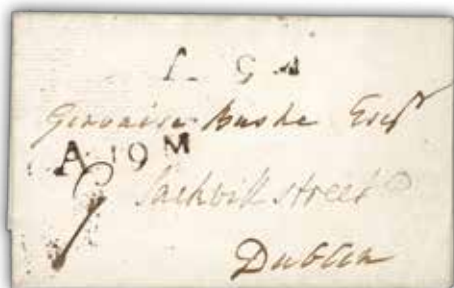 Gervaise Bushe Esqr
A 19 M
Sackvill street
Dublin